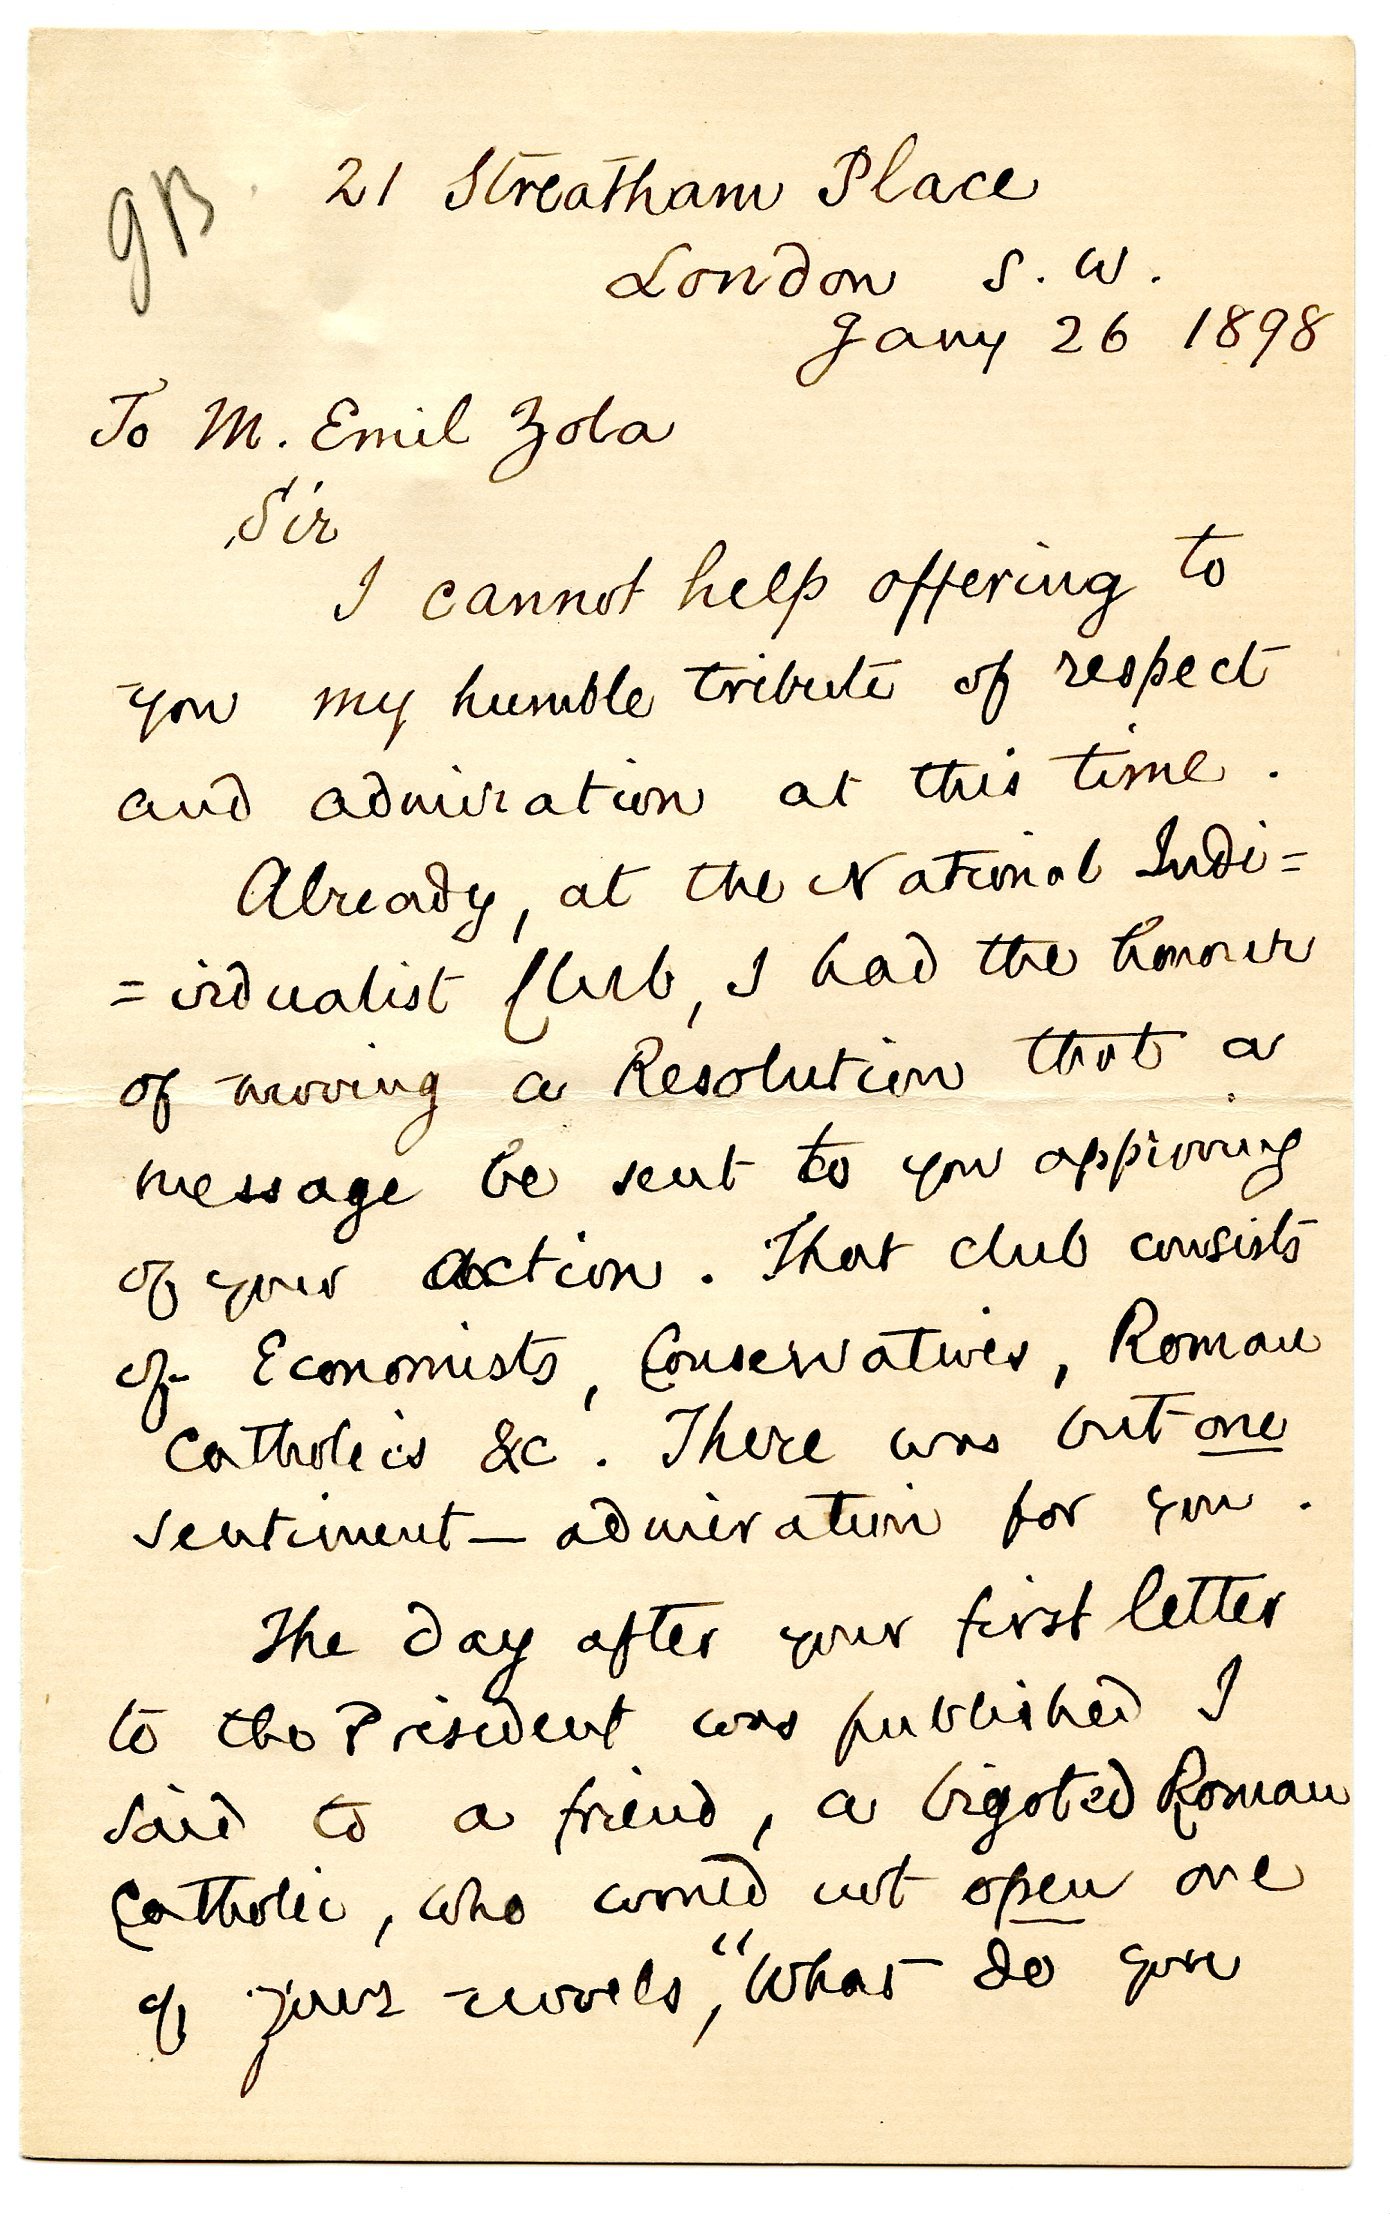 GB
21 Streatham Place
London S. W.
Jany 26 1898
To M. Emil Zola
Sir
I cannot help offering to
you my humble tribute of respect
and admiration at this time.
Already, at the National Indi=
=vidualist Club, I had the honour
of moving a Resolution that a
message be sent to you approving
of your action. That club consists
of Economists, Conservatives, Roman
Catholics &c. There was but one
sentiment — admiration for you.
The day after your first letter
to the President was published I
said to a friend, a bigoted Roman
Catholic, who would not open one
of your novels, "What do you